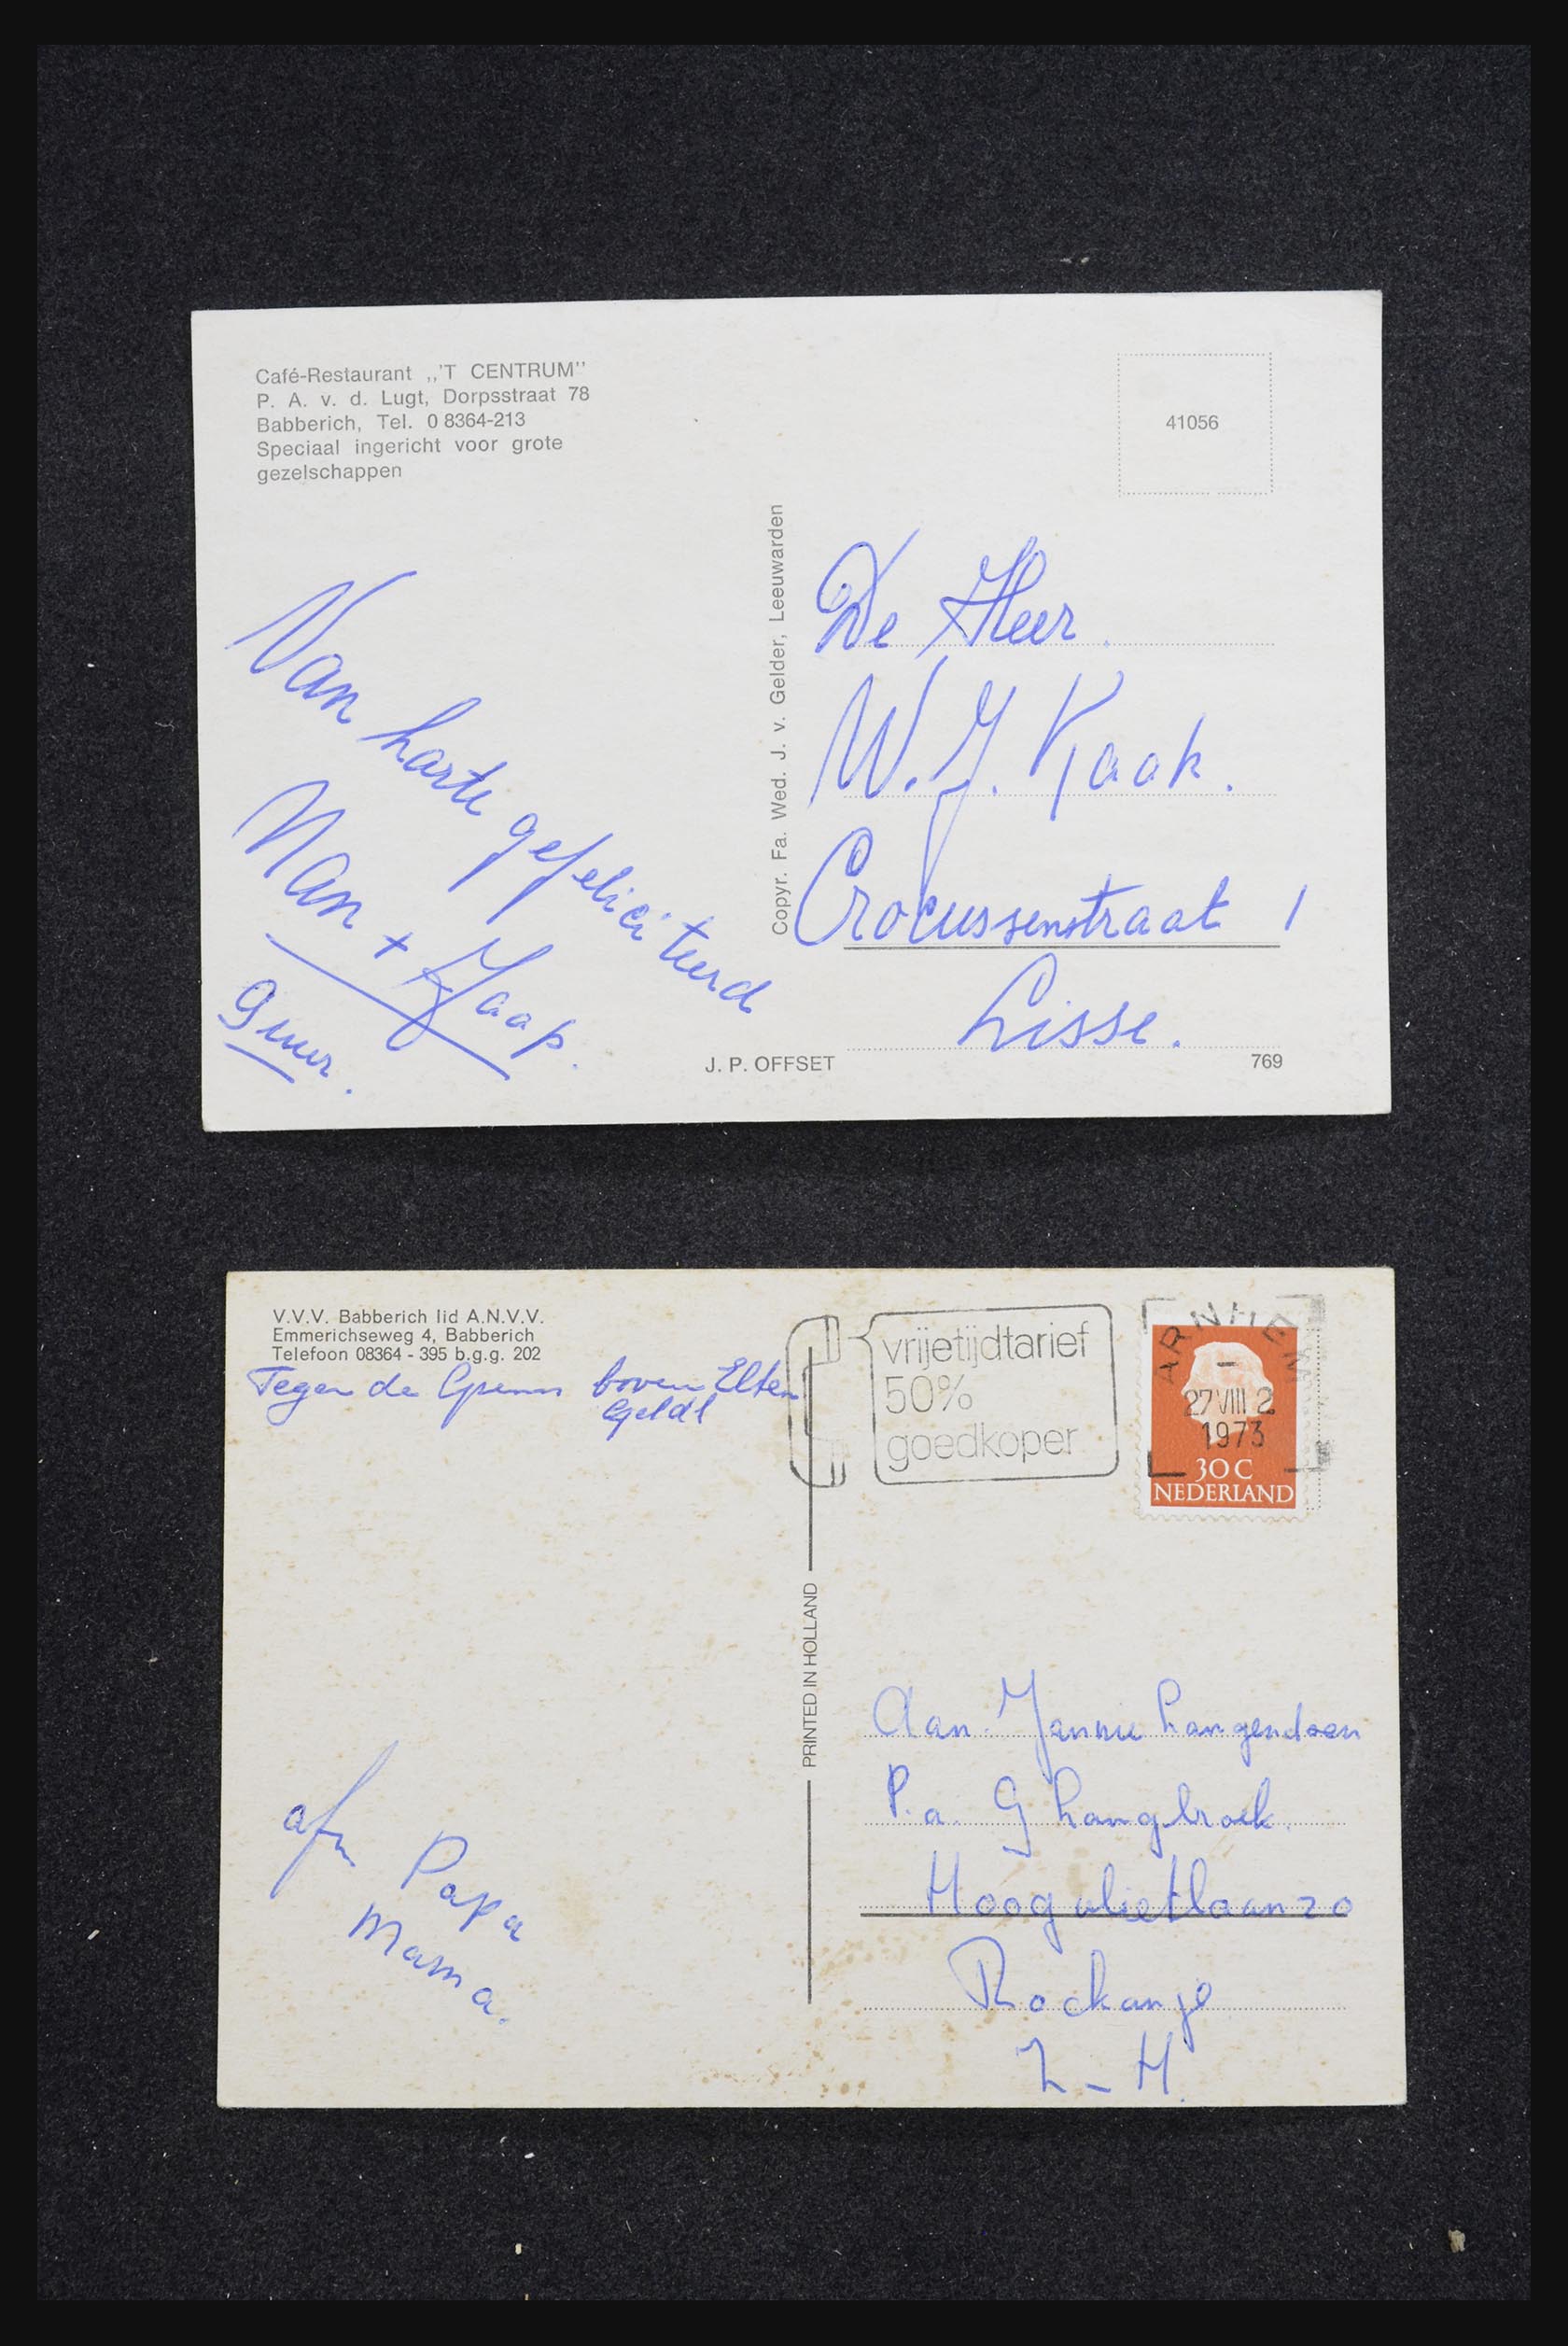 Café-Restaurant ,,'T CENTRUM''
P. A. v. d. Lugt, Dorpsstraat 78
Babberich, Tel. 0 8364-213
Speciaal ingericht voor grote
gezelschappen
41056
Van harte gefeliciteerd
Nan + Jaap.
Copyr. Fa. Wed. J. v. Gelder, Leeuwarden
De Heer
W. J. Kaak.
Crocussenstraat 1
Lisse.
J. P. OFFSET
769
V.V.V. Babberich lid A.N.V.V.
Emmerichseweg 4, Babberich
Telefoon 08364 - 395 b.g.g. 202
Tegen de boven Elten
Geldl
vrijetijdtarief
50%
goedkoper
ARNHEM
27 VIII 2
1973
30 C
NEDERLAND
PRINTED IN HOLLAND
afz Papa
Mama.
Aan Jannie Langendoen
P.a. G Langbroek.
Hoogvlietlaan 20
Rockanje
Z-H.